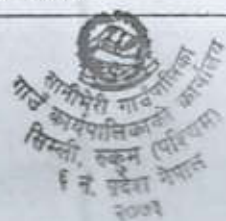 सानीभेरी गाउँपालिका
गाउँ कार्यपालिकाको कार्यालय
सिम्ली, रुकुम (पश्चिम)
६ नं. प्रदेश नेपाल
२०७३